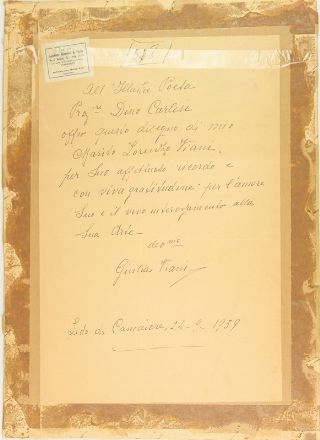 All'Illustre Poeta
Prof.re Dino Carlesi
offro questo disegno di mio
Marito Lorenzo Viani
per Suo affettuoso ricordo e
con viva gratitudine per l'amore
Suo e il vivo interessamento alla
Sua Arte -
dev.ma
Giulia Viani
Lido di Camaiore, 24-9-1959